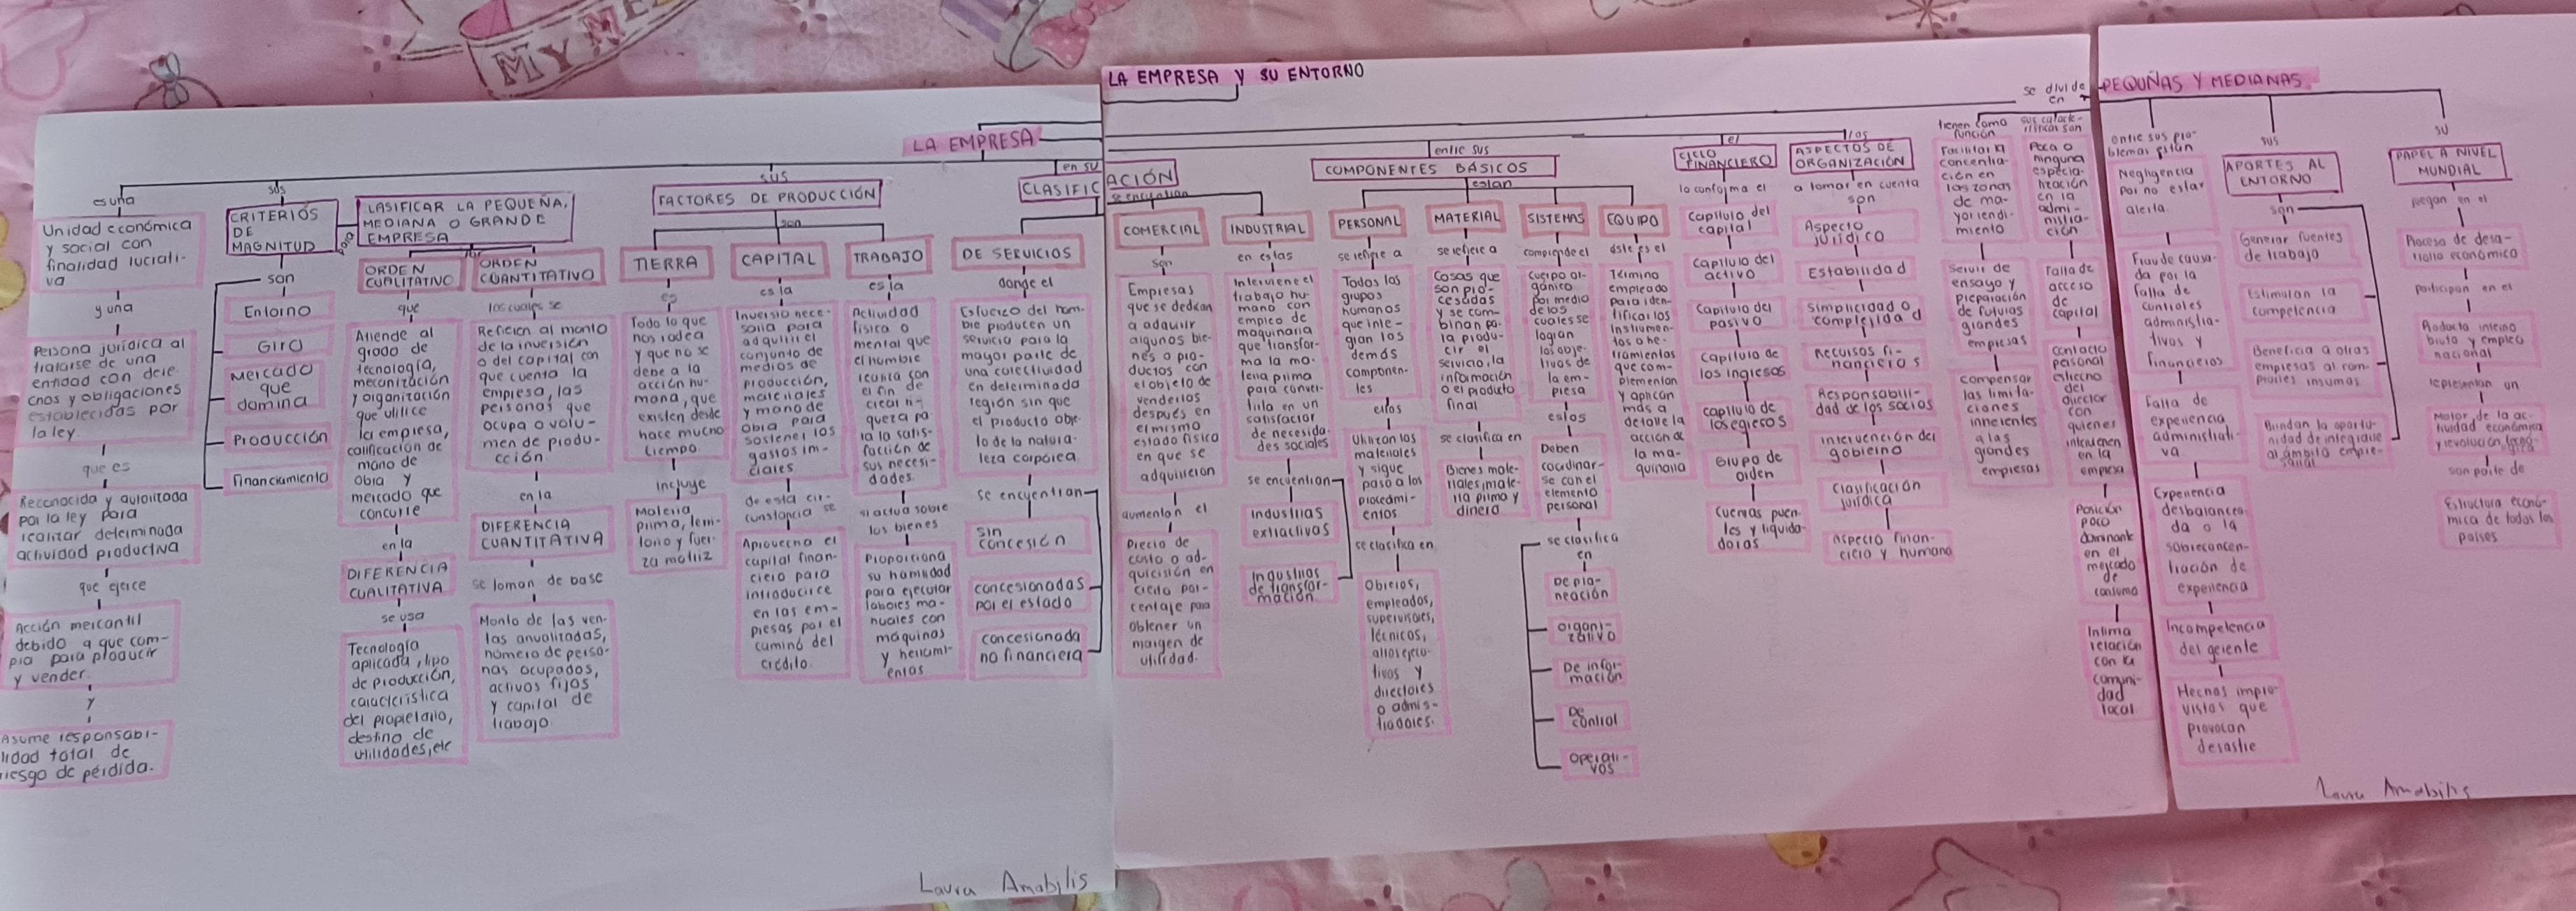 MY ME
LA EMPRESA Y SU ENTORNO
LA EMPRESA
es una
Unidad económica
y social con
finalidad lucrati-
va
y una
Persona jurídica al
tratarse de una
entidad con dere
chos y obligaciones
establecidas por
la ley.
que es
Reconocida y autorizada
por la ley para
realizar determinada
actividad productiva
que ejerce
Acción mercantil
debido a que com-
pra para producir
y vender.
y
Asume responsabi-
lidad total de
riesgo de pérdida.
sus
CRITERIOS
DE
MAGNITUD
son
Entorno
Giro
Mercado
que
domina
Producción
Financiamiento
para
CLASIFICAR LA PEQUEÑA,
MEDIANA O GRANDE
EMPRESA
por
ORDEN
CUALITATIVO
que
Atiende al
grado de
tecnología,
mecanización
y organización
que utilice
la empresa,
calificación de
mano de
obra y
mercado que
concurre
en la
DIFERENCIA
CUALITATIVA
se usa
Tecnología
aplicada, tipo
de producción,
característica
del propietario,
destino de
utilidades, etc
ORDEN
CUANTITATIVO
los cuales se
Refieren al monto
de la inversión
o del capital con
que cuenta la
empresa, las
personas que
ocupa o volu-
men de produ-
cción.
en la
DIFERENCIA
CUANTITATIVA
se toman de base
Monto de las ven-
tas anualizadas,
número de perso-
nas ocupados,
activos fijos
y capital de
trabajo
sus
FACTORES DE PRODUCCIÓN
son
TIERRA
es
Todo lo que
nos rodea
y que no se
debe a la
acción hu-
mana, que
existen desde
hace mucho
tiempo.
incluye
Materia
prima, terri-
torio y fuer-
za motriz
CAPITAL
es la
Inversio nece-
saria para
adquirir el
conjunto de
medios de
producción,
materiales
y mano de
obra para
sostener los
gastos ini-
ciales
de esta cir-
cunstancia se
Aprovecha el
capital finan-
ciero para
introducirce
en las em-
presas por el
camino del
crédito.
TRABAJO
es la
Actividad
física o
mental que
el hombre
realiza con
el fin de
crear ri-
queza pa
ra la satis-
facción de
sus necesi-
dades.
si actua sobre
los bienes
Proporciona
su habilidad
para ejecutar
labores ma-
nuales con
máquinas
y herrami-
entas
en su
CLASIFICACIÓN
se encuentran
DE SERVICIOS
donde el
Esfuerzo del hom-
bre producen un
servicio para la
mayor parte de
una colectividad
en determinada
región sin que
el producto obje-
to de la natura-
leza corpórea.
se encuentran
sin
concesión
concesionadas
por el estado
concesionada
no financiera
COMERCIAL
son
Empresas
que se dedican
a adquirir
algunos bie-
nes o pro-
ductos con
el objeto de
venderlos
después en
el mismo
estado físico
en que se
adquirieron
aumentan el
Precio de
costo o ad-
quicisión en
cierto por-
centaje para
obtener un
margen de
utilidad.
INDUSTRIAL
en estas
Interviene el
trabajo hu-
mano con
empleo de
maquinaria
que transfor-
ma la ma-
teria prima
para conver-
tirla en un
satisfactor
de necesida-
des sociales
se encuentran
industrias
extractivas
Industrias
de transfor-
mación.
entre sus
COMPONENTES BÁSICOS
estan
PERSONAL
se refiere a
Todos los
grupos
humanos
que inte-
gran los
demás
componen-
tes
ellos
Utilizan los
materiales
y sigue
paso a los
procedimi-
entos
se clasifica en
Obreros,
empleados,
supervisores,
técnicos,
altos ejecu-
tivos y
directores
o admis-
tradores.
MATERIAL
se refiere a
Cosas que
son pro-
cesadas
y se com-
binan pa-
ra produ-
cir el
servicio, la
información
o el producto
final
se clasifica en
Bienes mate-
riales, mate-
ria prima y
dinero
SISTEMAS
comprende el
Cuerpo or-
gánico
por medio
de los
cuales se
logran
los obje-
tivos de
la em-
presa
estos
Deben
coordinar-
se con el
elemento
personal
se clasifica
en
De pla-
neación
organi-
zativo
De infor-
mación
De
control
Operati-
vos
EQUIPO
este es el
Término
empleado
para iden-
tificar los
instrumen-
tos o he-
rramientas
que com-
plementan
y aplican
más a
detalle la
acción de
la ma-
quinaria
el
CICLO
FINANCIERO
lo conforma el
Capítulo del
capital
Capítulo del
activo
Capítulo del
pasivo
Capítulo de
los ingresos
Capítulo de
los egresos
Grupo de
orden
Cuentas puen-
tes y liquida-
doras
los
ASPECTOS DE
ORGANIZACIÓN
a tomar en cuenta
son
Aspecto
jurídico
Estabilidad
Simplicidad o
complejidad
Recursos fi-
nancieros
Responsabili-
dad de los socios
Intervención del
gobierno
Clasificación
jurídica
Aspecto finan-
ciero y humano
se divide
en
PEQUÑAS Y MEDIANAS
tienen como
función
Facilitar la
concentra-
ción en
las zonas
de ma-
yor rendi-
miento
Servir de
ensayo y
preparación
de futuras
grandes
empresas
Compensar
las limita-
ciones
inherentes
a las
grandes
empresas
sus caracte-
rísticas son
Poca o
ninguna
especia-
lización
en la
admi-
nistra-
ción
Falta de
acceso
de
capital
Contacto
personal
estrecho
del
director
con
quienes
intervienen
en la
empresa
Posición
poco
dominante
en el
mercado
de
consumo
Intima
relación
con la
comuni-
dad
local
entre sus pro-
blemas están
Negligencia
por no estar
alerta.
Fraude causa-
da por la
falta de
controles
administra-
tivos y
financieros
Falta de
experiencia
administrati-
va
Experiencia
desbalancea-
da o la
sobreconcen-
tración de
experiencia
Incompetencia
del gerente
Hechos impre-
vistos que
provocan
desastre
sus
APORTES AL
ENTORNO
son
Generar fuentes
de trabajo
Estimulan la
competencia
Beneficia a otras
empresas al com-
prarles insumos
Brindan la oportu-
nidad de integrarse
al ámbito empre-
sarial
su
PAPEL A NIVEL
MUNDIAL
juegan en el
Proceso de desa-
rrollo económico
participan en el
Producto interno
bruto y empleo
nacional
representan un
Motor de la ac-
tividad económica
y revolución tecno-
lógica
son parte de
Estructura econó-
mica de todos los
países
Laura Amabilis
Laura Amabilis